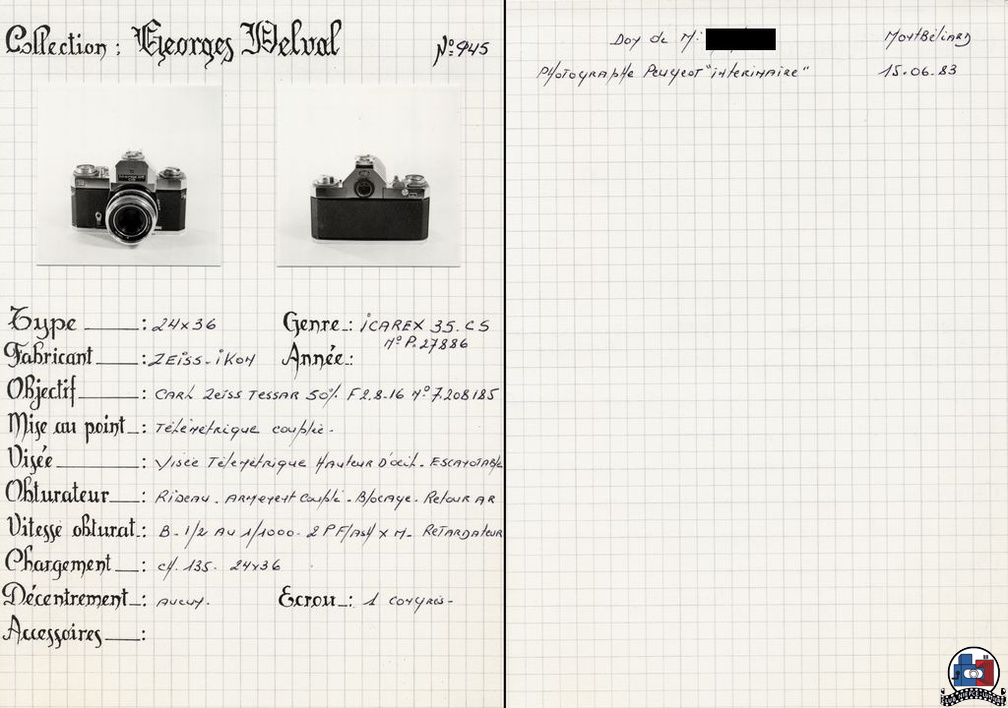 Collection : Georges Delval N° 945
Type : 24x36
Genre : iCAREX 35.CS
N° P.27886
Fabricant : ZEiSS-iKON
Année :
Objectif : CARL Zeiss TESSAR 50% F 2.8-16 N° 7.208185
Mise au point : Télémétrique couplée.
Visée : Visée Télémétrique Hauteur D'œil. ESCAMOTABLE
Obturateur : Rideau. ARMEMENT couplé. Blocage. Retour AR
Vitesse obturat : B. 1/2 Au 1/1000. 2 PFlash X M. RETARDATEUR
Chargement : ch. 135. 24x36
Décentrement : Aucun.
Ecrou : 1 congrès.
Accessoires :
Don de M:
MONTBÉLiARD
PHOTOGRAPHE Peugeot "intérimaire" 15.06.83